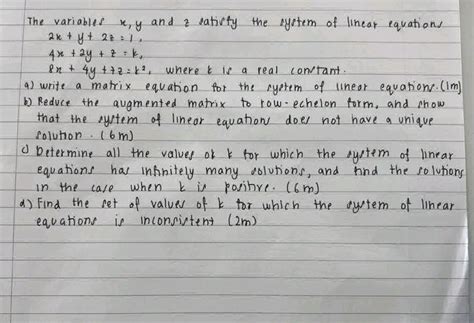 The variables x, y and z satisfy the system of linear equations
2x + y + 2z = 1,
4x + 2y + z = k,
8x + 4y + 7z = k², where k is a real constant.
a) write a matrix equation for the system of linear equations. (1m)
b) Reduce the augmented matrix to row-echelon form, and show
that the system of linear equations does not have a unique
solution. (6m)
c) Determine all the values of k for which the system of linear
equations has infinitely many solutions, and find the solutions
in the case when k is positive. (6m)
d) Find the set of values of k for which the system of linear
equations is inconsistent (2m)